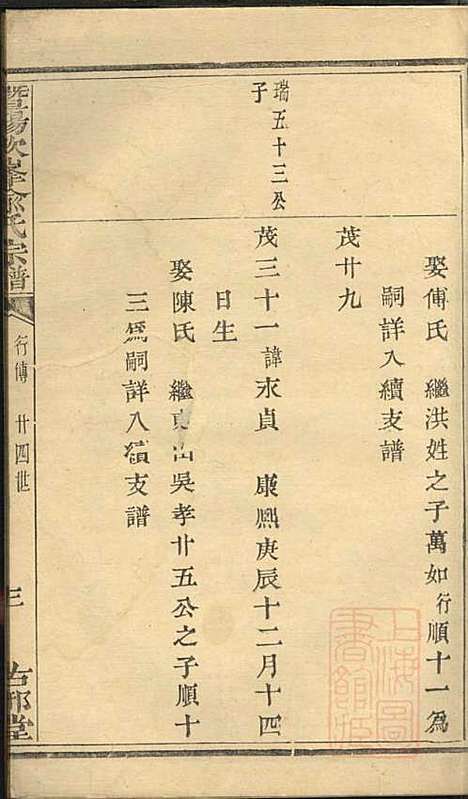 娶傅氏 繼洪姓之子萬如行順十一為
嗣詳入續支譜
茂廿九
瑞五十三公
子
茂三十一諱永貞 康熙庚辰十二月十四
日生
娶陳氏 繼東 吳孝廿五公之子順十
三為嗣詳入續支譜
暨陽次峯俞氏宗譜
行傳 廿四世
三
堂
上海圖
書館